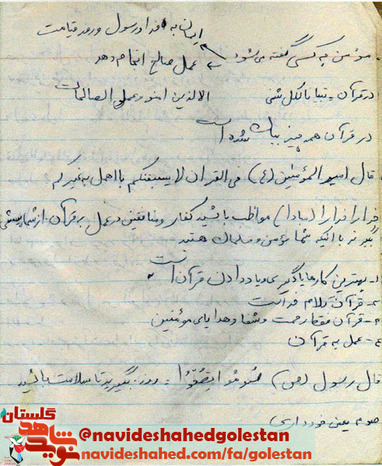 ایمان به خدا و رسول و روز قیامت
مؤمن به کسی گفته می‌شود که
عمل صالح انجام دهد
در قرآن - تبیانا لکل شی
الا الذین امنو و عملو الصالحات
در قرآن همه چیز بیان شده است
قال امیر المؤمنین (ع) فی القران لا یسبقنکم با العمل به غیرکم
مواظب باشید کفار و منافقین در عمل به قرآن از شما پیشی
نگیرند با اینکه شما مؤمن و مسلمان هستید
بهترین کارها یادگیری و یاد دادن قرآن است
۲- قرآن کلام خداست
۳- قرآن رحمت و شفا و هدایای مؤمنین
۴- عمل به قرآن
قال رسول (ص) صوموا تصحوا - روزه بگیرید تا سلامت باشید
صوم یعنی خودداری
نوید شاهد گلستان
@navideshahedgolestan
navideshahed.com/fa/golestan